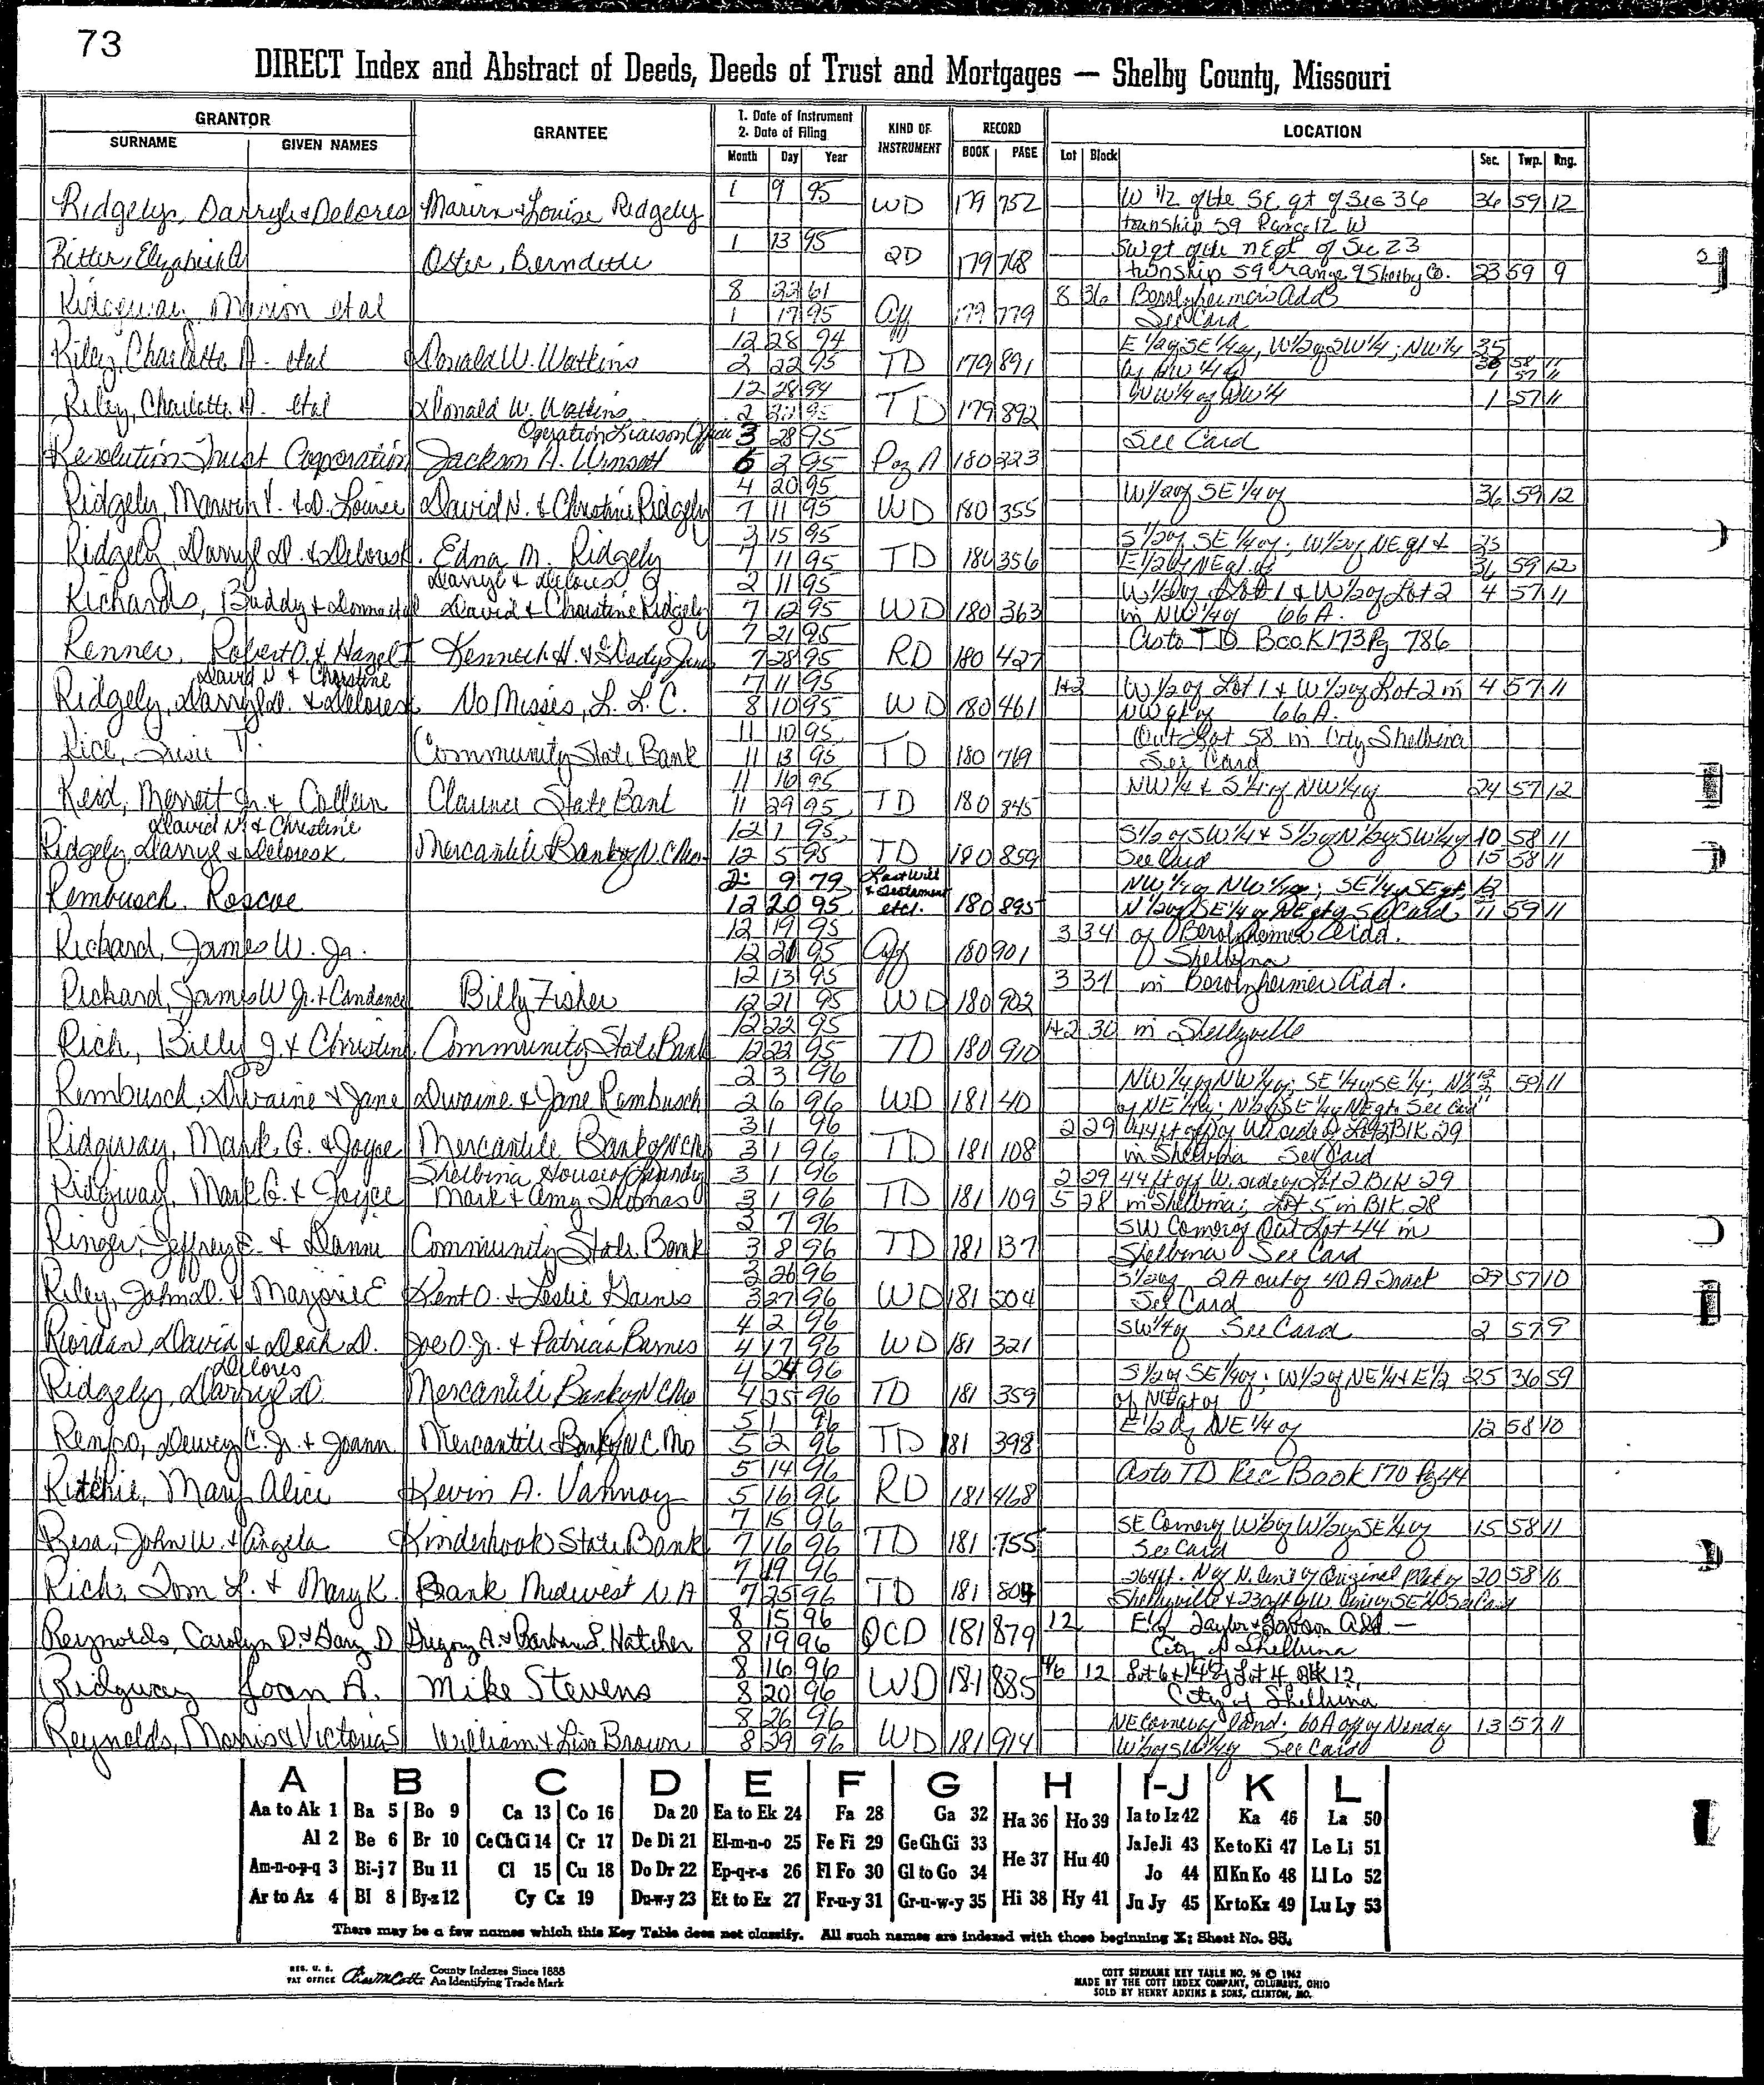 73
DIRECT Index and Abstract of Deeds, Deeds of Trust and Mortgages — Shelby County, Missouri
GRANTOR
SURNAME GIVEN NAMES
GRANTEE
1. Date of Instrument
2. Date of Filing
Month Day Year
KIND OF INSTRUMENT
RECORD
BOOK PAGE
LOCATION
Lot Block Sec. Twp. Rng.
1 9 95 W 1/2 of the SE qt of Sec 36 36 59 12
Ridgely, Darryl & Delores Louise Ridgely WD 179 752
township 59 Range 12 W
1 13 95 SW qt of the NE qt of Sec 23
Ritter, Oster, QD 179 768 township 59 range 9 Shelby Co. 23 59 9
8 22 61 8 36
Ridgeway, Marion et al 1 17 95 Aff 179 779 See Card
12 28 94 E 1/2 of SE 1/4 of, W 1/2 of SW 1/4; NW 1/4 35
Riley, Charlotte A. etal Donald W. Watkins 2 22 95 TD 179 891 of NW 1/4 of 36 58 11
1 57 11
12 28 94 NW 1/4 of NW 1/4 1 57 11
Riley, Charlotte A. etal Donald W. Watkins 2 22 95 TD 179 892
Operation Liaison 3 28 95 See Card
Resolution Trust Corporation Jackson A. 6 2 95 180 223
4 20 95 W 1/2 of SE 1/4 of 36 59 12
Ridgely, Marvin & D. Louise David N. & Christine Ridgely 7 11 95 WD 180 355
3 15 95 S 1/2 of SE 1/4 of; W 1/2 of NE qt & 25
Ridgely, Darryl D. & Edna M. Ridgely 7 11 95 TD 180 356 E 1/2 of NE qt of 36 59 12
Darryl & Delores 2 11 95 W 1/2 of Lot 1 & W 1/2 of Lot 2 4 57 11
Richards, Buddy & David & Christine Ridgely 7 12 95 WD 180 363 in NW 1/4 of 66 A.
7 21 95 As to TD Book 173 Pg 786
Renner, Robert O. & Hazel Kenneth H. & Gladys 7 28 95 RD 180 427
David N & Christine 7 11 95 1+2 W 1/2 of Lot 1 & W 1/2 of Lot 2 in 4 57 11
Ridgely, Darryl D. & Delores No Misses, L. L. C. 8 10 95 WD 180 461 NW qt of 66 A.
11 10 95 Out Lot 58 in City Shelbina
Rice, T. Community State Bank 11 13 95 TD 180 769 See Card
11 16 95 NW 1/4 & of NW 1/4 of 24 57 12
Reid, Merrett Jr. & Colleen Clarence State Bank 11 29 95 TD 180 845
David N. & Christine 12 1 95 S 1/2 of SW 1/4 & S 1/2 of N 1/2 of SW 1/4 of 10 58 11
Ridgely, Darryl & Delores K Mercantile Bank of N. C Mo 12 5 95 TD 180 859 See Card 15 58 11
2 9 79 Last Will NW 1/4 of NW 1/4 of; SE 1/4 of SE qt; 12
Rembusch, Roscoe 12 20 95 & Testament etc. 180 895 N 1/2 of SE 1/4 of NE qt of See Card 11 59 11
12 19 95 3 34 of Berolzheimer Add.
Richard, James W. Jr. 12 20 95 Aff 180 901 Shelbina
12 13 95 3 34 in Berolzheimer Add.
Richard, James W Jr. & Candance Billy Fisher 12 21 95 WD 180 902
12 22 95 1+2 30 in Shelbyville
Rich, Billy J. & Christine Community State Bank 12 22 95 TD 180 910
2 3 96 NW 1/4 of NW 1/4 of; SE 1/4 of SE 1/4; 59 11
Rembusch, Dwaine & Jane Dwaine & Jane Rembusch 2 6 96 WD 181 40 of NE 1/4 of; N 1/2 of SE 1/4 of NE qt. See Card
3 1 96 2 29 44 ft off of W side of Lot 2 BLK 29
Ridgway, Mark G. & Joyce Mercantile Bank of NC Mo 3 1 96 TD 181 108 in Shelbina See Card
Shelbina House of 3 1 96 2 29 44 ft off W. side of Lot 2 BLK 29
Ridgway, Mark G. & Joyce Mark & Amy Thomas 3 1 96 TD 181 109 5 28 in Shelbina; Lot 5 in BLK 28
3 7 96 SW Corner of Out Lot 44 in
Ringer, Jeffrey E. & Community State Bank 3 8 96 TD 181 137 Shelbina See Card
3 26 96 S 1/2 of 2 A out of 40 A Tract 29 57 10
Riley, John D. & Marjorie E Kent O. & Leslie Gaines 3 27 96 WD 181 204 See Card
4 2 96 SW 1/4 of See Card 2 57 9
Riordan, David & Leah D. Joe O. Jr. & Patricia Barnes 4 17 96 WD 181 321
Delores 4 24 96 S 1/2 of SE 1/4 of; W 1/2 of NE 1/4 & E 1/2 25 36 59
Ridgely, Darryl D. Mercantile Bank of N C Mo 4 25 96 TD 181 359 of NE qt of
5 1 96 E 1/2 of NE 1/4 of 12 58 10
Renfro, Dewey C. Jr. & Joann Mercantile Bank of N.C. Mo 5 2 96 TD 181 398
5 14 96 As to TD Rec Book 170 Pg 44
Ritchie, Mary Alice Kevin A. Vannoy 5 16 96 RD 181 468
7 15 96 SE Corner of W 1/2 of W 1/2 of SE 1/4 of 15 58 11
Resa, John W. & Angela Kinderhook State Bank 7 16 96 TD 181 755 See Card
7 19 96 264 ft. N of N. line of Original Plat of 20 58 16
Rich, Tom L. & Mary K. Bank Midwest N.A 7 25 96 TD 181 804 Shelbyville & 230 ft of W. See Card
8 15 96 12 E 1/2 Taylor & Add —
Reynolds, Carolyn D. & Gary D Gregory A. & Barbara S. Hatcher 8 19 96 QCD 181 879 City of Shelbina
8 16 96 4/6 12 Lot 6 & of Lot 4, Blk 12,
Ridgway Joan A. Mike Stevens 8 20 96 WD 181 885 City of Shelbina
8 26 96 NE Corner of land; 60 A off of N end of 13 57 11
Reynolds, Morris & Victoria S William & Lisa Brown 8 29 96 WD 181 914 W 1/2 of SW 1/4 of See Card
A B C D E F G H I-J K L
Aa to Ak 1 Ba 5 Bo 9 Ca 13 Co 16 Da 20 Ea to Ek 24 Fa 28 Ga 32 Ha 36 Ho 39 Ia to Iz 42 Ka 46 La 50
Al 2 Be 6 Br 10 Ce Ch Ci 14 Cr 17 De Di 21 El-m-n-o 25 Fe Fi 29 Ge Gh Gi 33 He 37 Hu 40 Ja Je Ji 43 Ke to Ki 47 Le Li 51
Am-n-o-p-q 3 Bi-j 7 Bu 11 Cl 15 Cu 18 Do Dr 22 Ep-q-r-s 26 Fl Fo 30 Gl to Go 34 Hi 38 Hy 41 Jo 44 Kl Kn Ko 48 Ll Lo 52
Ar to Az 4 Bl 8 By-z 12 Cy Cz 19 Du-w-y 23 Et to Ez 27 Fr-u-y 31 Gr-u-w-y 35 Ju Jy 45 Kr to Kz 49 Lu Ly 53
There may be a few names which this Key Table does not classify. All such names are indexed with those beginning X; Sheet No. 95.
REG. U. S. PAT OFFICE County Indexes Since 1888
An Identifying Trade Mark
COTT SURNAME KEY TABLE NO. 96 © 1962
MADE BY THE COTT INDEX COMPANY, COLUMBUS, OHIO
SOLD BY HENRY ADKINS & SONS, CLINTON, MO.